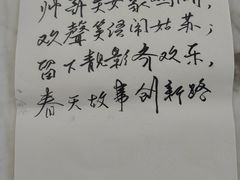 帅哥美女家
欢聲笑语闹姑苏；
留下靓影齐欢乐，
春天故事创新路